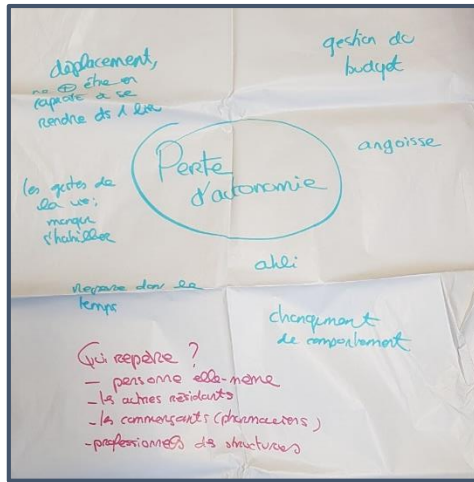 gestion du
budget
déplacement,
ne ⊕ être en
capacité à se
rendre ds 1 lieu
angoisse
Perte
d'autonomie
les gestes de
la vie:
manger
s'habiller
repère dans le
temps
changement
de comportement
Qui repère ?
— personne elle-même
- les autres résidants
- les commerçants (pharmaciens)
- professionnels de structures